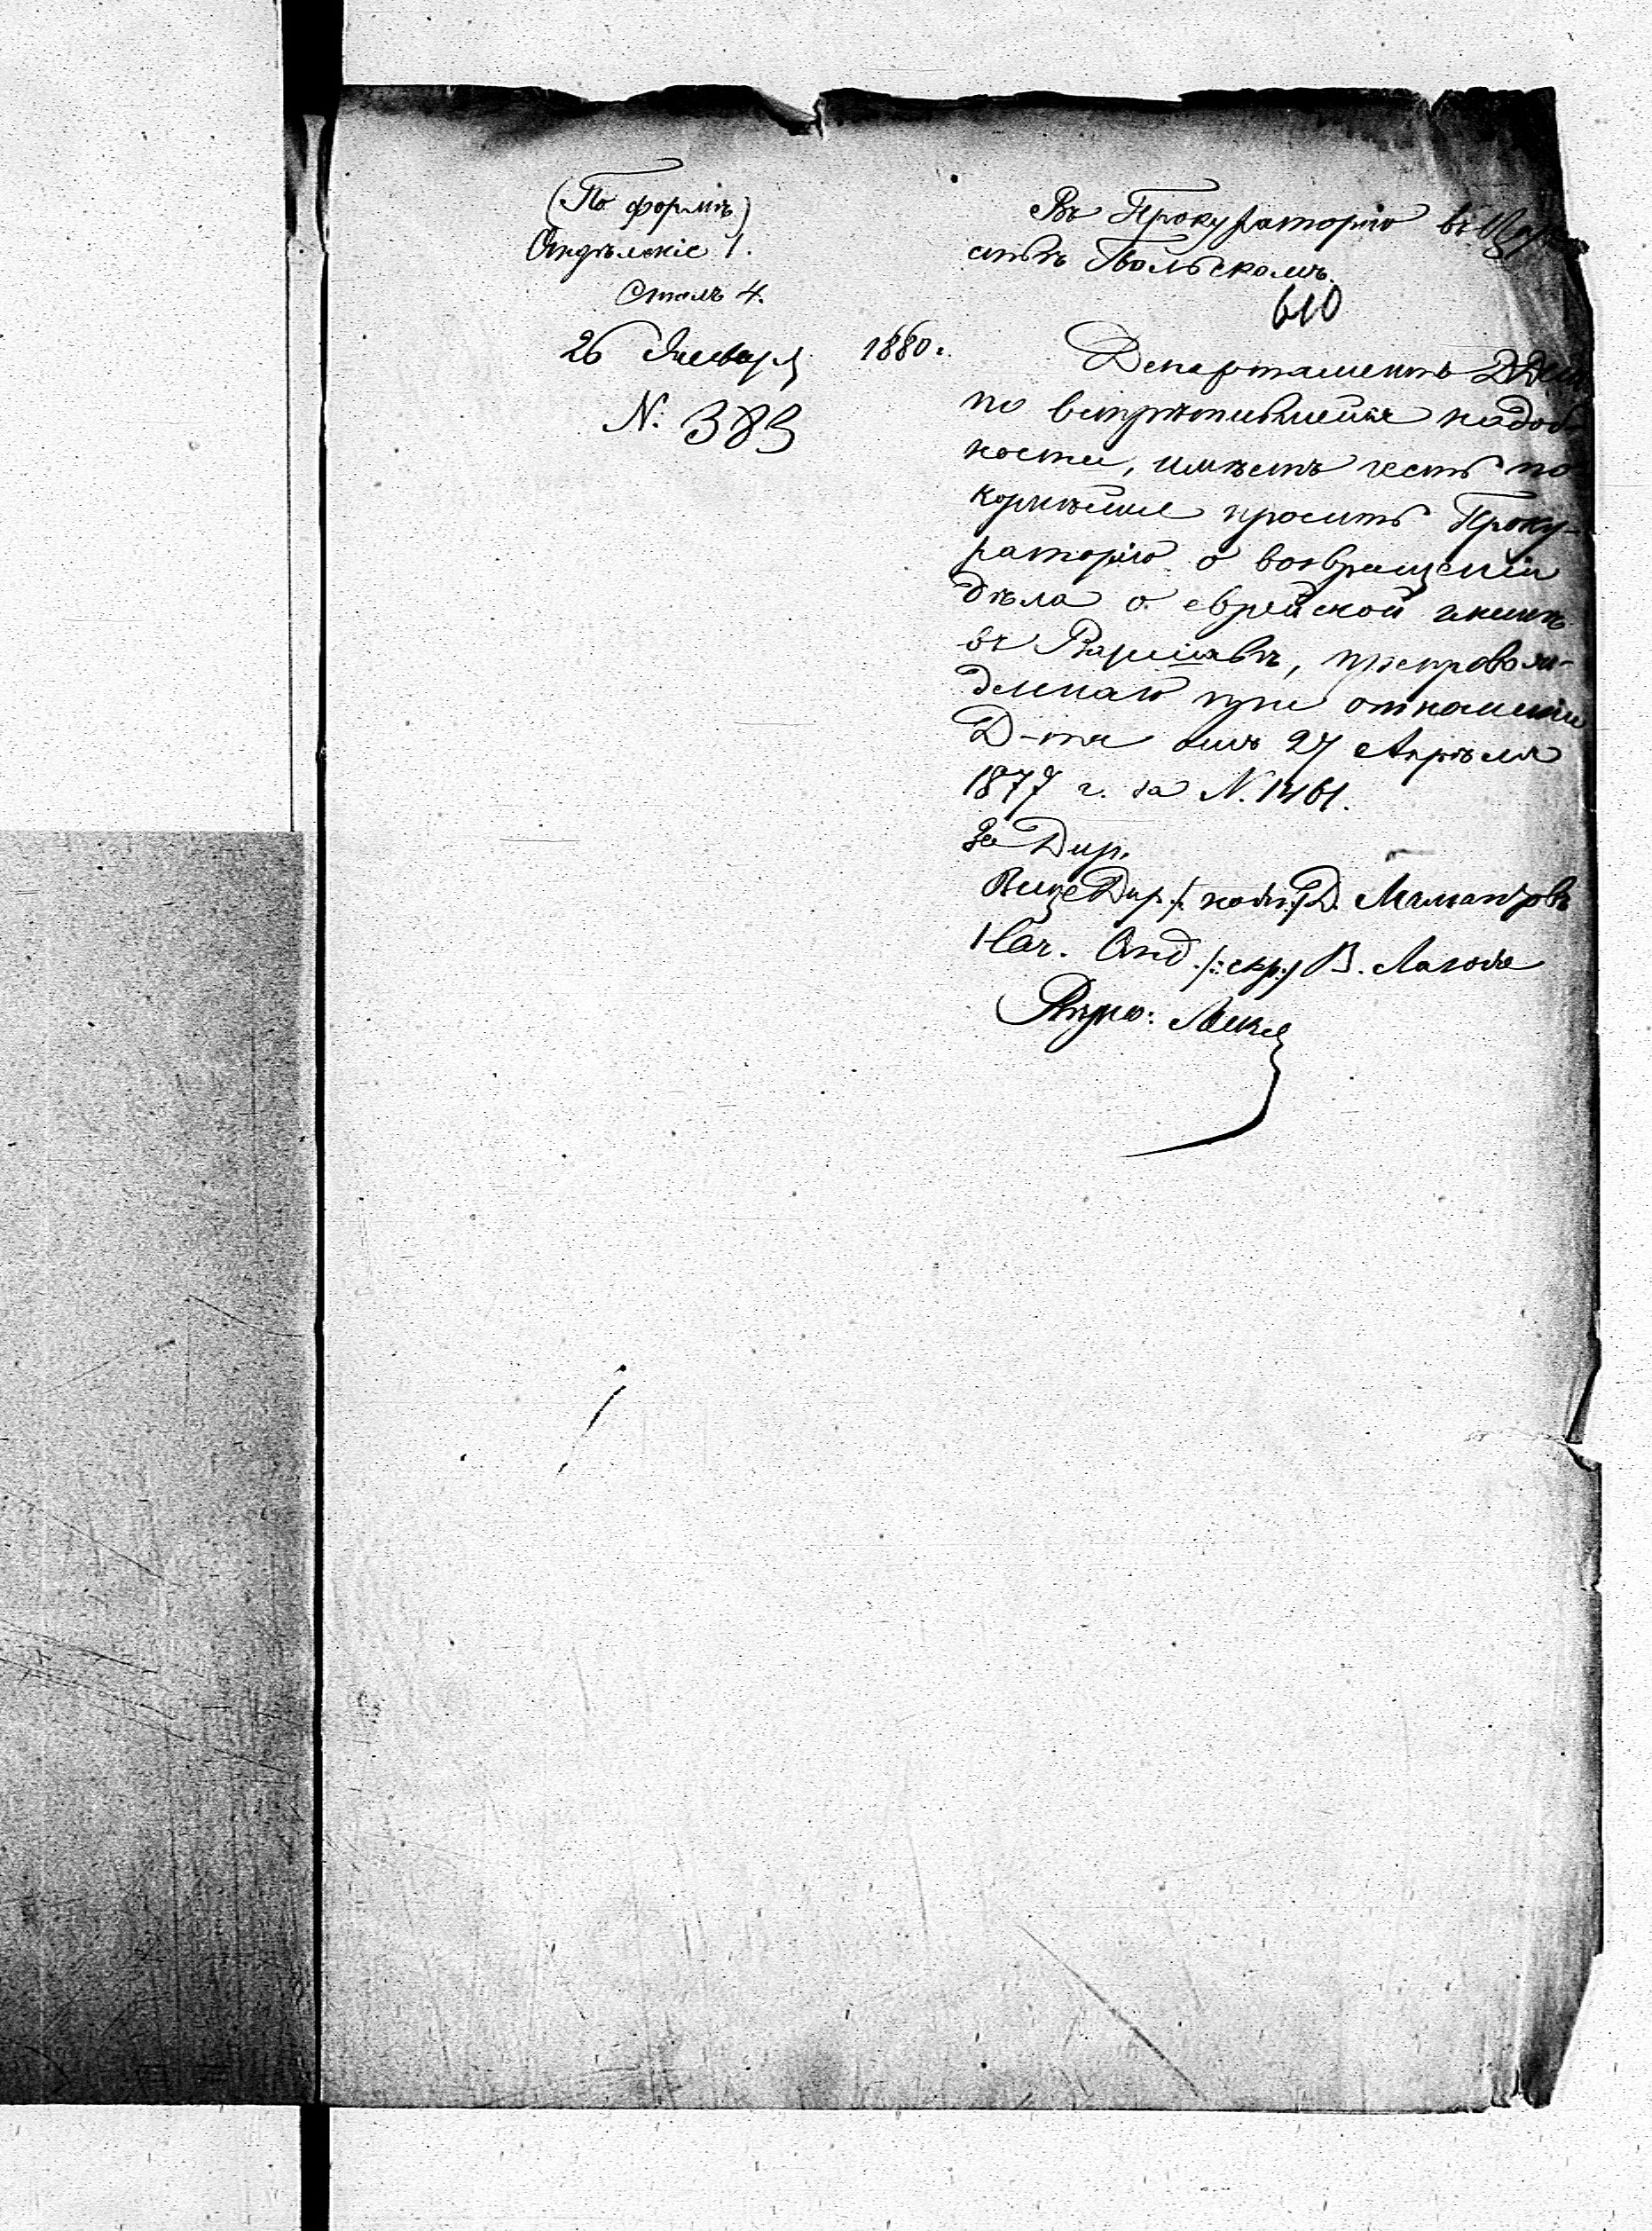 (По формѣ)
Отдѣленіе 1.
Столъ 4.
26 Января 1880 г.
N: 383
Въ Прокураторію въ Цар-
ствѣ Польскомъ.
610
Департаментъ ДДелъ
по встрѣтившейся надоб-
ности, имѣетъ честь по-
корнѣйше просить Проку-
раторію о возвращеніи
дѣла о еврейской
въ Варшавѣ, препровож-
деннаго при отношеніи
Д-та отъ 27 Апрѣля
1877 г. за N. 1461.
За Дир.
Вице Дир. /: подп:/ Д.
Нач. Отд. /: скр:/ В.
Вѣрно: